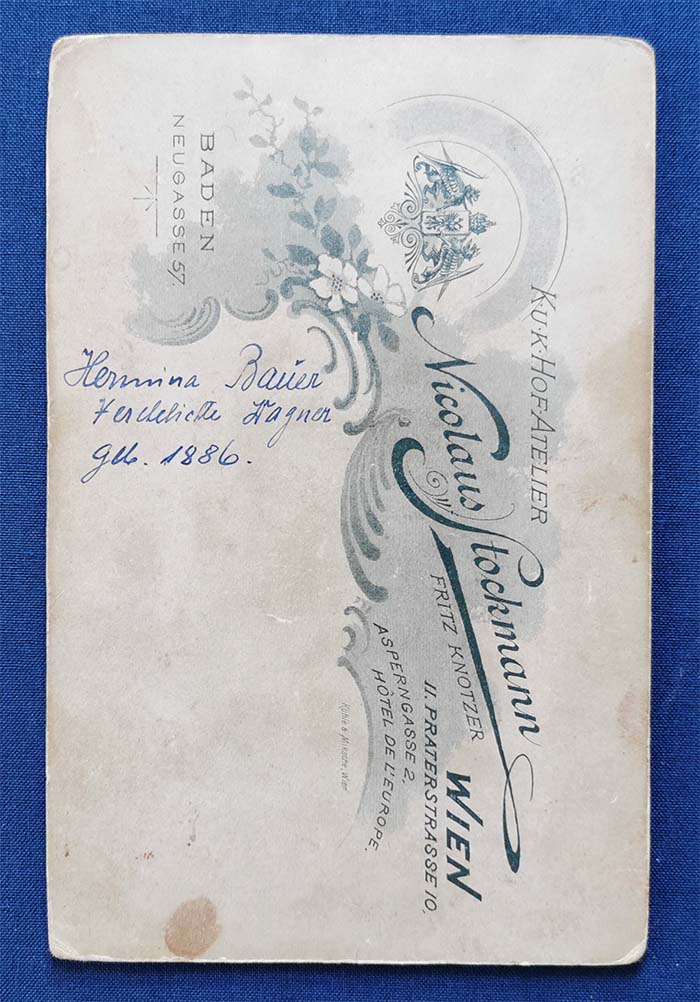 K.U.K. HOF-ATELIER
Nicolaus Stockmann
FRITZ KNOTZER
WIEN
II. PRATERSTRASSE 10,
ASPERNGASSE 2,
HÔTEL DE L'EUROPE.
BADEN
NEUGASSE 57.
Hermina Bauer
Wagner
geb. 1886.
Kühle & Miksche, Wien